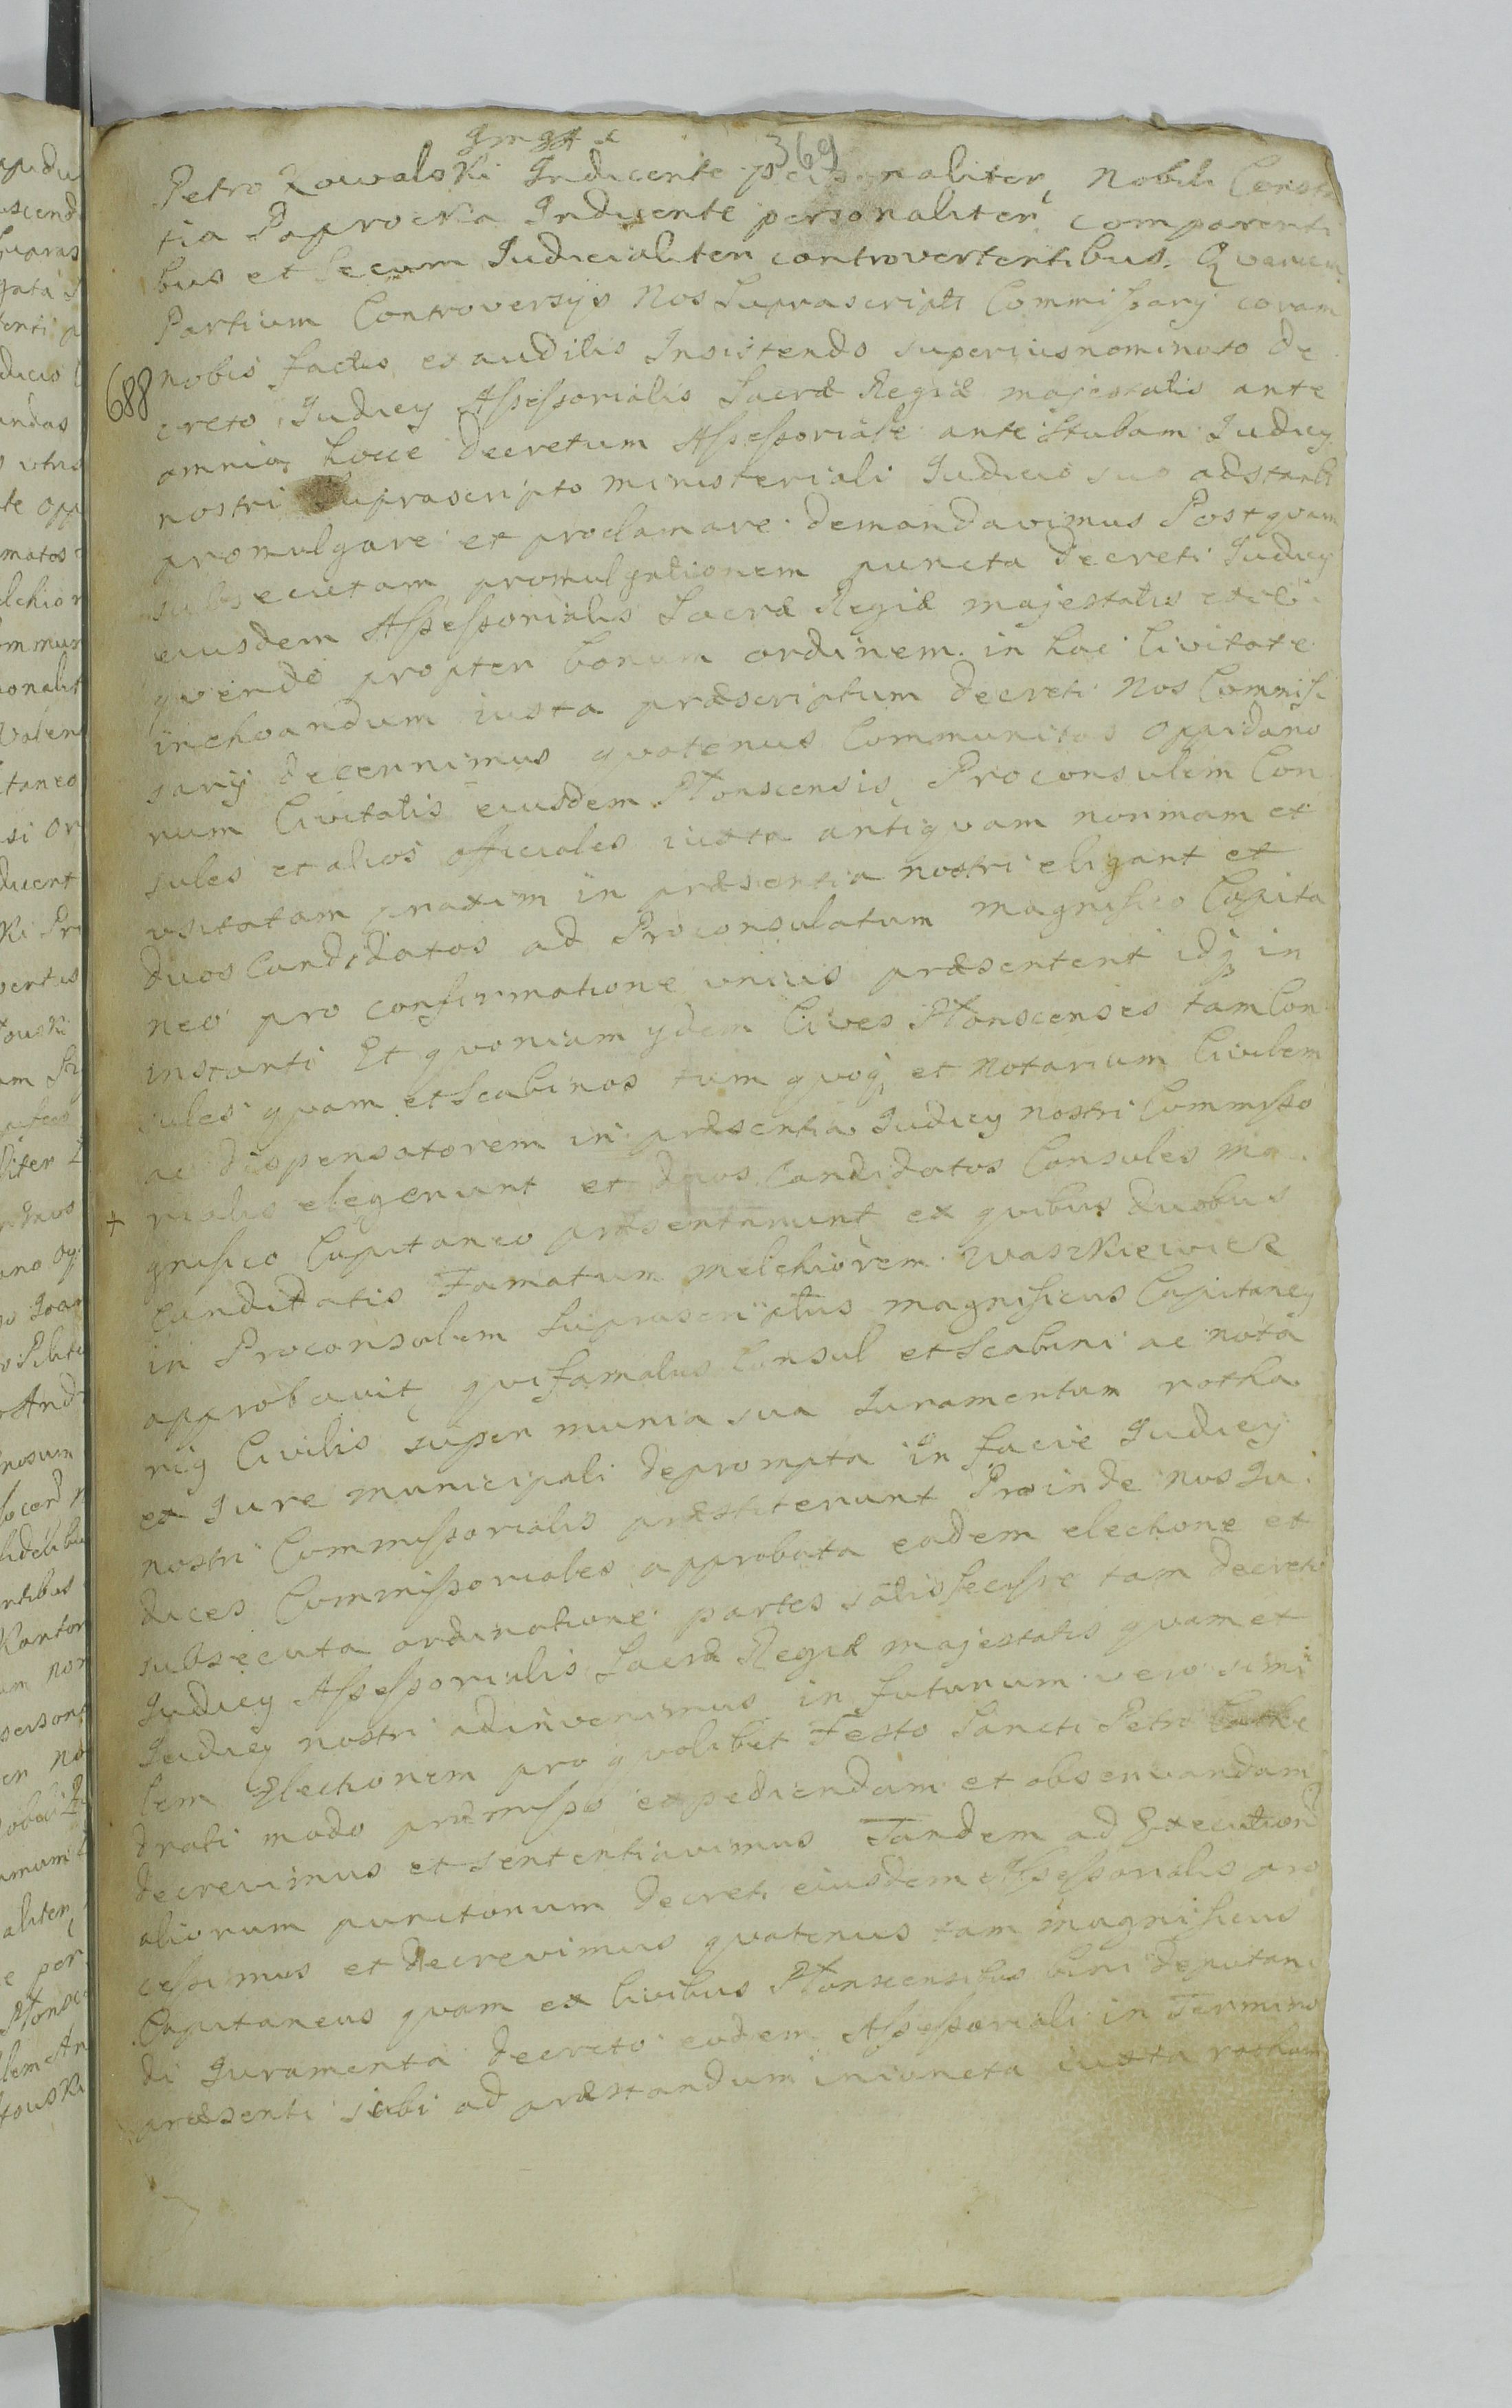 369
Petro Kowalski Inducente personaliter, Nobili Consta
tia Paprocka Inducente personaliter comparenti
bus et secum Judicialiter controvertentibus. Quarum
Partium Controversijs Nos Suprascripti Commissarij coram
688
nobis factis exauditis Insistendo superiusnominato De
creto Judicij Assessorialis Sacræ Regiæ majestatis ante
omnia hocce Decretum Assessoriale ante Stubam Judicij
nostri Suprascripto ministeriali Judicio suo adstanti
promulgare et proclamare demandavimus Post quam
subsecutam promulgationem puncta Decreti Judicij
eiusdem Assessorialis Sacræ Regiæ majestatis exe
quendo propter bonum ordinem in hac Civitate
inchoandum iuxta præscriptum Decreti Nos Commis
sarij decernimus quatenus Communitas Oppidano
rum Civitatis eiusdem Płonscensis, Proconsulem Con
sules et alios officiales iuxta antiquam normam et
usitatam praxim in præsentia nostri eligant et
duos Candidatos ad Proconsulatum magnifico Capita
neo pro confirmatione unius præsentent idq in
instanti Et quoniam ydem Cives Płonscenses tam Con
sules quam et Scabinos tum quoq et Notarium Civilem
ac dispensatorem in præsentia Judicij nostri Commisso
rialis elegerunt et duos Candidatos Consules ma
+
gnifico Capitaneo præsentarunt ex quibus duobus
Candidatis Famatum Melchiorem Waszkiewicz
in Proconsulem Suprascriptus magnificus Capitaneg
approbavit, qui famatus Consul et Scabini ac nota
rig Civilis super munia sua Juramentum rotha
ex Jure municipali deprompta in facie Judicij
nostri Commissorialis præstiterunt Proinde nos Ju
dices Commissoriales approbata eadem electione et
subsecuta ordinatione partes satisfecisse tam decreto
Judicij Assessorialis Sacræ Regiæ majestatis quam et
Judicij nostri adinvenimus in futurum vero simi
lem Electionem pro quolibet Festo Sancti Petri Cathe
drati modo præmisso expediendam et observandam
decrevimus et sententiavimus Tandem ad Execution
aliorum punctorum Decreti eiusdem Assessorialis pro
cessimus et decrevimus quatenus tam magnificus
Capitaneus quam ex Civibus Płonscensibus bini deputan
di Juramenta decreto eodem Assessoriali in Termino
præsenti sibi ad præstandum iniuncta iuxta rotham